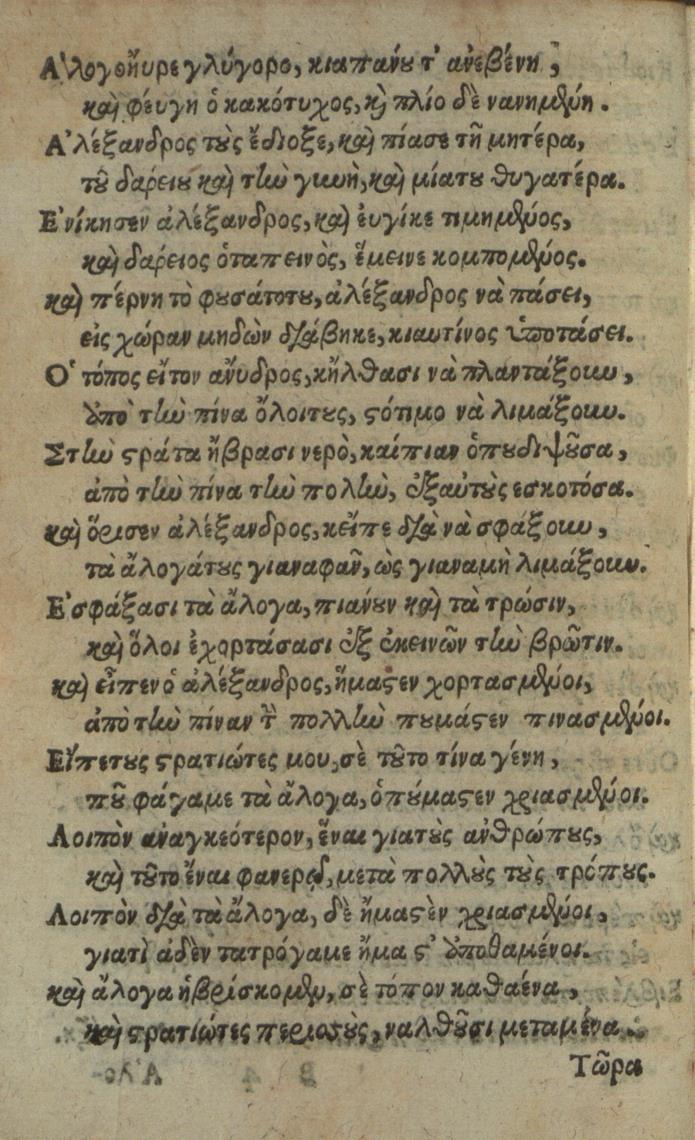 Α'λογοηὗρε γλύγορο, κιαπανύ τ' ανεβένη,
καὶ φέυγη ὁ κακότυχος, κὶ πλίο δὲ νανημθύη.
Α'λέξανδρος τοὺς ἔδιοξε, καὶ πίασε τῆ μητέρα,
τοῦ δαρείου καὶ τὴν γινὴ, καὶ μίατου θυγατέρα.
Ε'νίκησεν ἀλέξανδρος, καὶ ἐυγίκε τιμημένος,
καὶ δαρειος ὁταπεινὸς, ἔμεινε κομπομένος.
καὶ πέρνη τὸ φυσάτοτου, ἀλέξανδρος νὰ πάσει,
εἰς χώραν μηδὼν διάβηκε, κιαυτίνος ὑποτάσει.
Ο' τόπος εἶτον ἄνυδρος, κἦλθασι νὰ πλαντάξουν,
ὑπὸ τὴν πίνα ὅλοιτους, στότιμο νὰ λιμάξουν.
Στὴν στράτα ἥβρασι νερὸ, καίπιαν ὁπουδιψοῦσα,
ἀπὸ τὴν πίνα τὴν πολὴν, ἐξαὐτοὺς εσκοτόσα.
καὶ ὅρισεν ἀλέξανδρος, κεῖπε διὰ νὰ σφάξουν,
τὰ ἄλογάτους γιαναφᾶν, ὡς γιαναμὴ λιμάξουν.
Ε'σφάξασι τὰ ἄλογα, πιάνουν καὶ τὰ τρώσιν,
καὶ ὅλοι ἐχορτάσασι ἐξ ἐκεινῶν τὴν βρῶτιν.
καὶ εἶπεν ὁ ἀλέξανδρος, ἤμαστεν χορτασμένοι,
ἀπὸ τὴν πίναν τὴ πολλὴν πουμάστεν πινασμένοι.
Εἴπετους στρατιώτες μου, σὲ τοῦτο τίνα γένη,
ποῦ φάγαμε τὰ ἄλογα, ὁπύμαστεν χριασμένοι.
Λοιπὸν αναγκεότερον, ἔναι γιατοὺς ανθρώπους,
καὶ τοῦτο ἔναι φανερὸ, μετὰ πολλοὺς τοὺς τρόπους.
Λοιπὸν διὰ τὰ ἄλογα, δὲ ἤμαστὲν χριασμένοι,
γιατὶ ἀδὲν τατρόγαμε ἤμα στ' ὑποθαμένοι.
καὶ ἄλογα ἡβρίσκομεν, σὲ τόπον καθαένα,
καὶ στρατιώτες περισοὺς, ναλθοῦσι μεταμένα.
Τῶρα